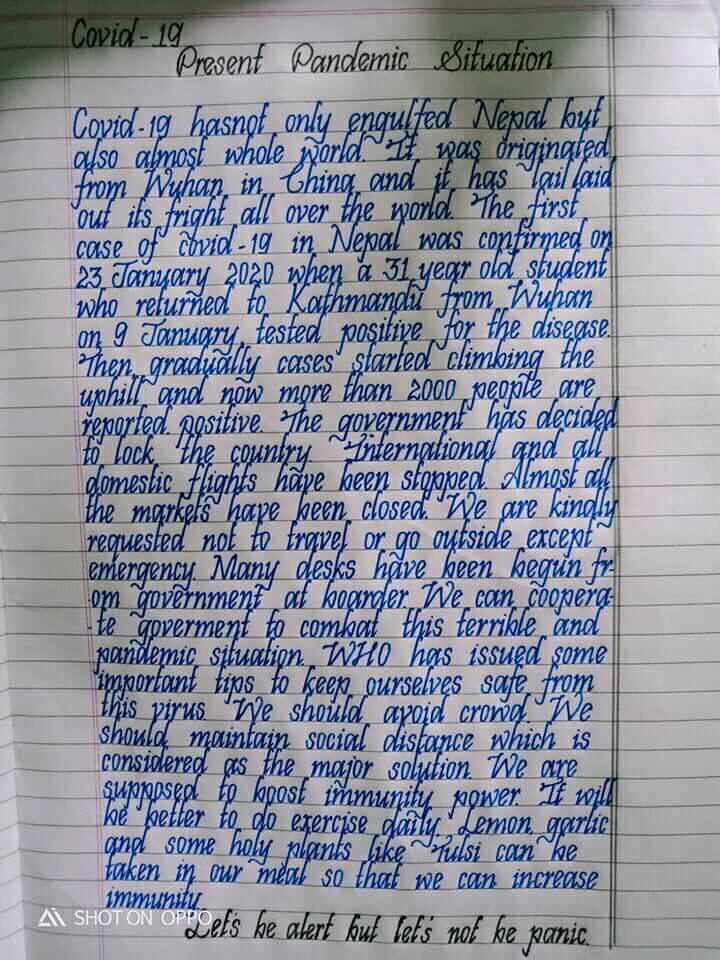 Covid-19
Present Pandemic Situation
Covid-19 hasnot only engulfed Nepal but
also almost whole world. It was originated
from Wuhan in China and it has lail laid
out its fright all over the world. The first
case of covid-19 in Nepal was confirmed on
23 January 2020 when a 31 year old student
who returned to Kathmandu from Wuhan
on 9 January, tested positive for the disease.
Then, gradually cases started climbing the
uphill and now more than 2000 people are
reported positive. The government has decided
to lock the country. International and all
domestic flights have been stopped. Almost all
the markets have been closed. We are kindly
requested not to travel or go outside except
emergency. Many desks have been begun fr-
om government at boarder. We can coopera-
-te goverment to combat this terrible and
pandemic situation. WHO has issued some
important tips to keep ourselves safe from
this virus. We should avoid crowd. We
should maintain social distance which is
considered as the major solution. We are
supposed to boost immunity power. It will
be better to do exercise daily. Lemon, garlic
and some holy plants like Tulsi can be
taken in our meal so that we can increase
immunity.
SHOT ON OPPO
Let's be alert but let's not be panic.